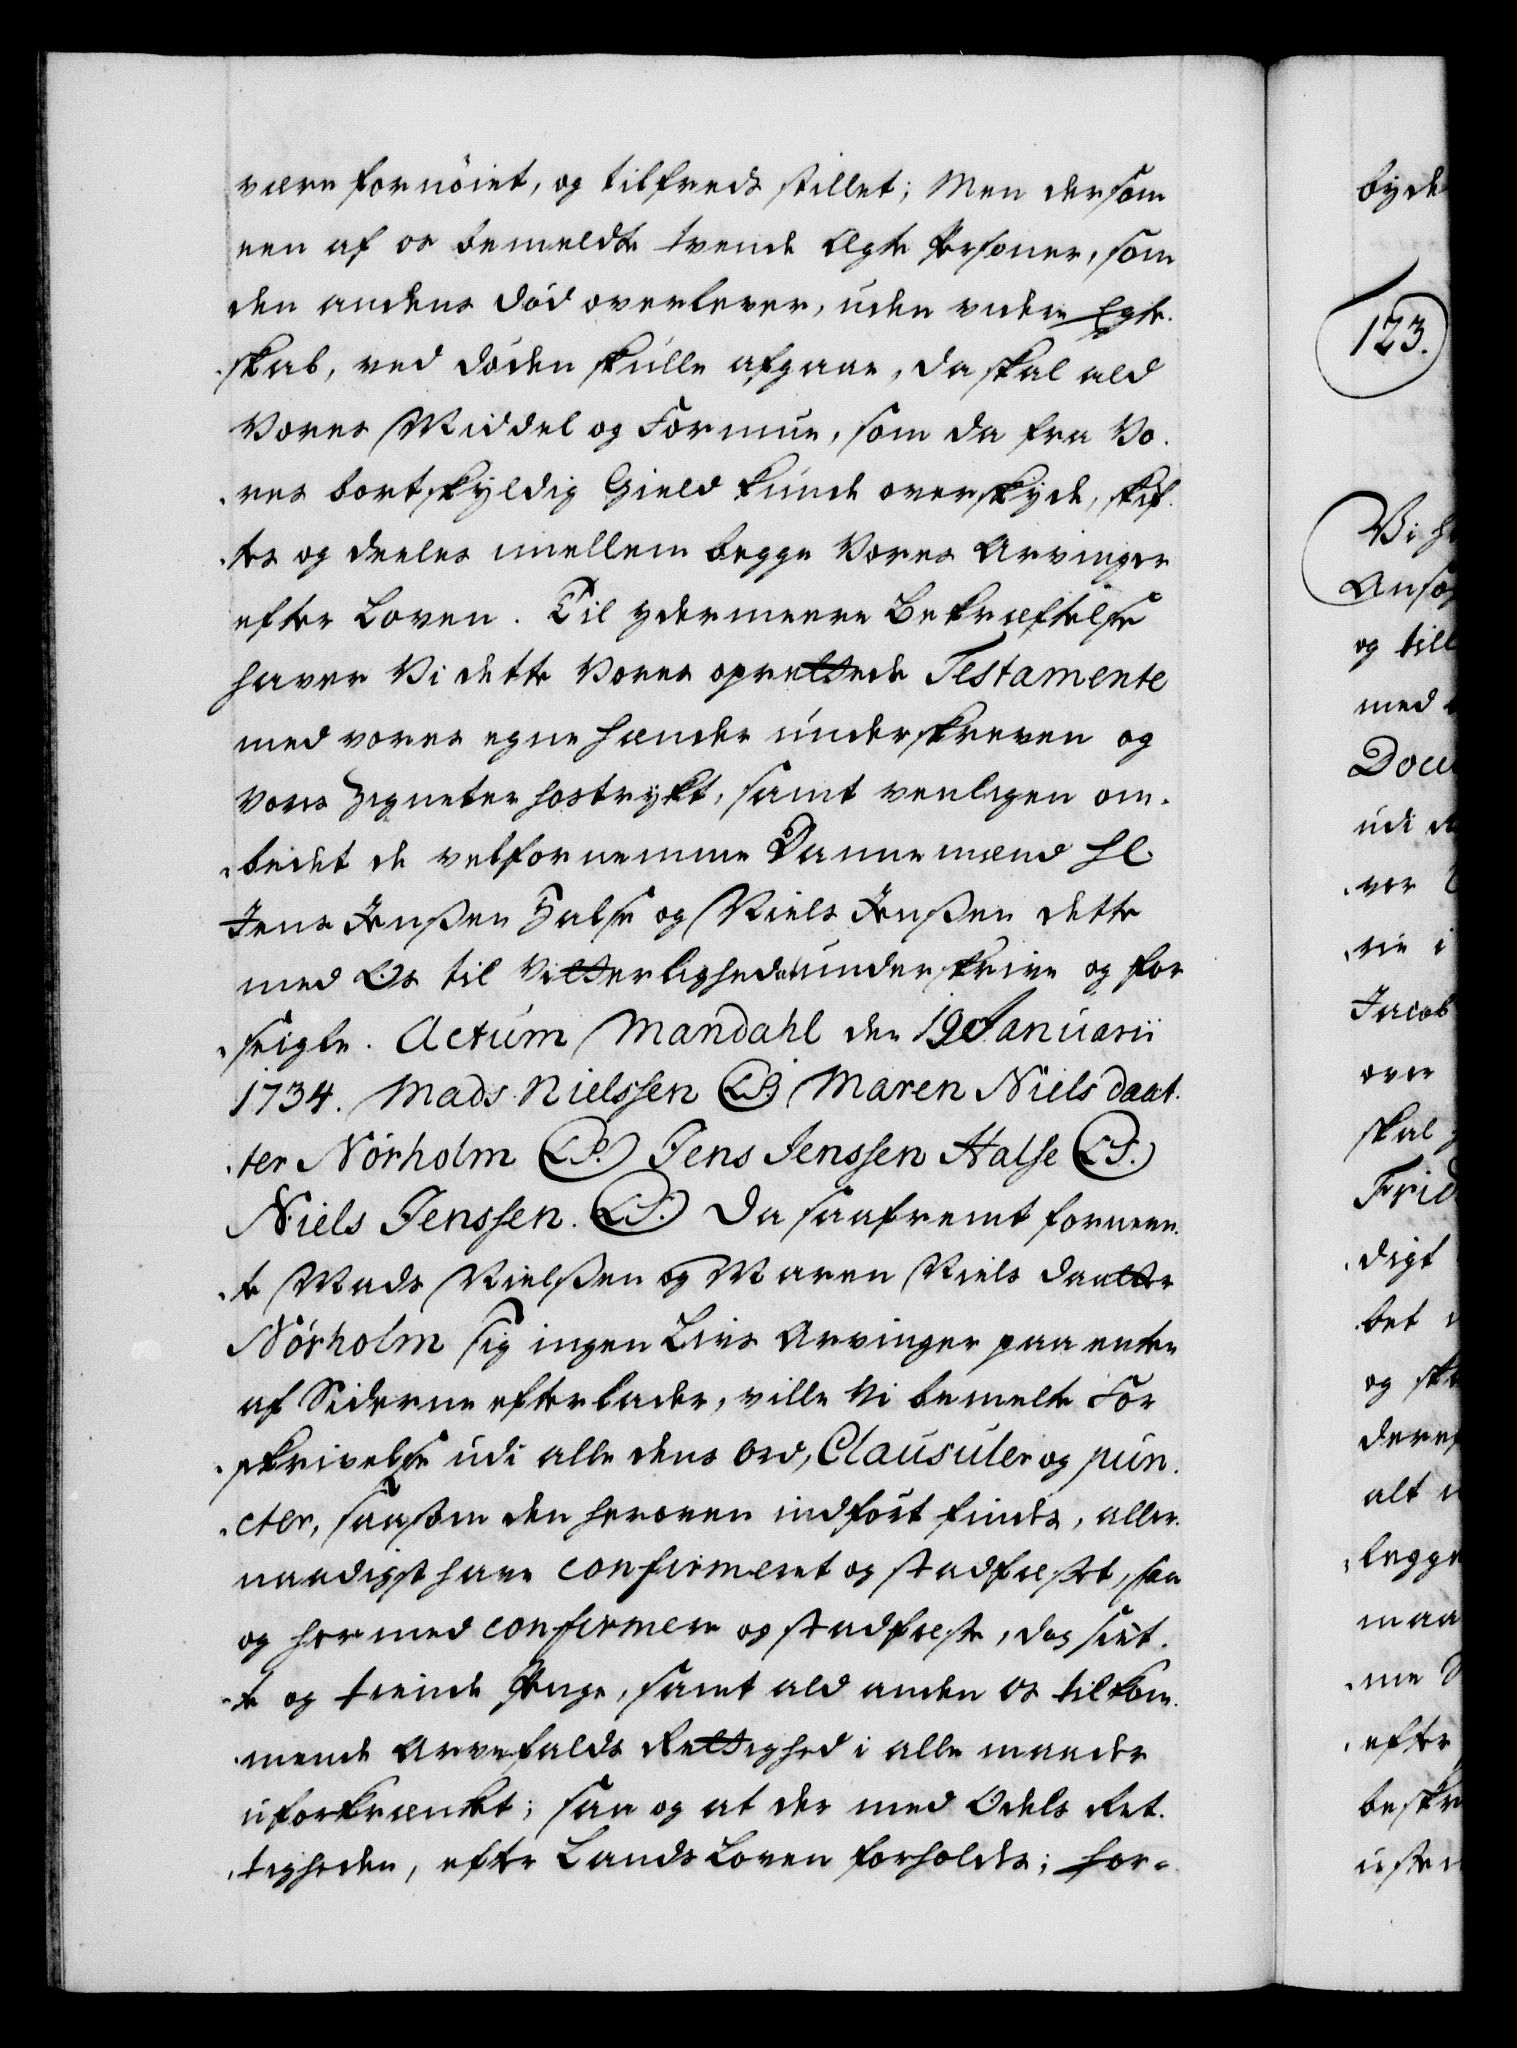 være fornöiet, og tilfreds stillet; Men dersom
een af os bemeldte tvende Ægte Persones, som
den andens Död overlever, uden videre Egte¬
skab, ved döden skulle afgaae, da skal ald
Vores Middel og Formue, som da fra Vo¬
res bortskyldig Gield kunde overskyde, skif¬
tes og deeles imellem begge Vores Arvinger
efter Loven. Til ydermeere Bekræftelse
haver Vi dette Vores oprettede Testamente
med vores egne Hænder underskreven og
vores Zigneter hostrykt, samt venligen om¬
bedet de velfornemme Dannemænd Hl
Jens Jenssen Halse og Niels Jenssen dette
med Os til Vitterlighed at underskrive og for
seigle. Actum Mandahl den 19 Januarii
1734. Mads Nielssen (LS) Maren Niels daat¬
ter Nörholm (LS.) Jens Jenssen Halse (LS.)
Niels Jenssen. (LS.) Da saafremt fornevn¬
te Mads Nielssen og Maren Niels daatter
Nörholm sig ingen Livs Arvinger paa enten
af Siderne efterlader, ville Vi bemelte For
skrivelse udi alle dens Ord, Clausuler og pun¬
cter, saasom den heroven indfört findes, aller¬
naadigst have confirmeret og stadfæstet, saa
og hermed confirmere og stadfæste, dog siet¬
te og tiende Penge, samt ald anden Os tilkom¬
mende Arvefalds Rettighed i alle maader
uforkrænket; saa og at der med Odels Ret¬
tigheden, efter Lands Loven forholdes; For-
byde
123.
og till
med
udi
Jacob
over
skal
digt
bet
alt